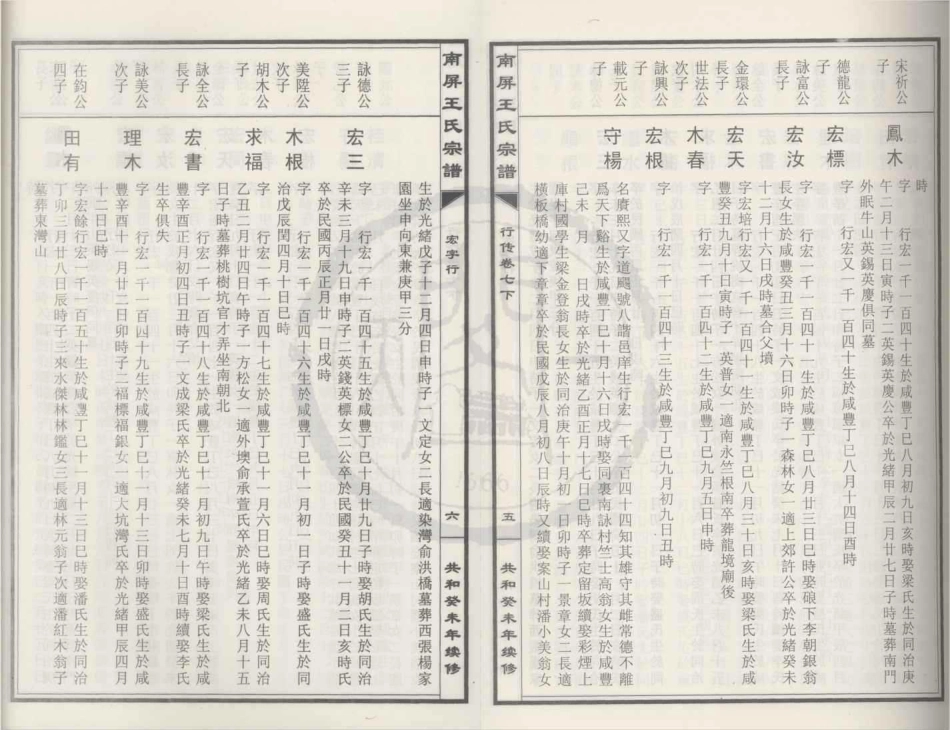 時
宋祈公
子
鳳木
字　行宏一千一百四十生於咸豐丁巳八月初九日亥時娶梁氏生於同治庚
午二月十三日寅時子二英錫英慶公卒於光緒甲辰二月廿七日子時墓葬南門
外眠牛山英錫英慶俱同墓
德龍公
子
宏標
字　行宏又一千一百四十生於咸豐丁巳八月十四日酉時
詠富公
長子
宏汝
字　行宏一千一百四十一生於咸豐丁巳八月廿三日巳時娶硠下李朝銀翁
長女生於咸豐癸丑三月十六日卯時子一森林女一適上郊許公卒於光緒癸未
十二月十六日戌時墓合父墳
金環公
長子
宏天
字宏培行宏又一千一百四十一生於咸豐丁巳八月三十日亥時娶梁氏生於咸
豐癸丑九月十日寅時子一英普女一適南永竺根南卒葬龍境廟後
世法公
次子
木春
字　行宏一千一百四十二生於咸豐丁巳九月五日申時
詠興公
子
宏根
字　行宏一千一百四十三生於咸豐丁巳九月初九日丑時
載元公
子
守楊
名賡熙又字道颺號八諧邑庠生行宏一千一百四十四知其雄守其雌常德不離
爲天下谿生於咸豐丁巳十月十六日戌時娶同裏南詠村竺士高翁女生於咸豐
己未　月　日戌時卒於光緒乙酉正月十七日巳時卒葬定留坂續娶彩煙上
庫村國學生梁金登翁長女生於同治庚午十月初一日卯時子一景章女二長適
橫板橋幼適下章章卒於民國戊辰八月初八日辰時又續娶案山村潘小美翁女
南屏王氏宗譜
行传卷七下
五
共和癸未年续修
南屏王氏宗譜
宏字行
六
共和癸未年续修
生於光緒戊子十二月四日申時子一文定女二長適染灣俞洪橋墓葬西張楊家
園坐申向東兼庚甲三分
詠德公
三子
宏三
字　行宏一千一百四十五生於咸豐丁巳十月廿九日子時娶胡氏生於同治
辛未三月十九日申時子二英錢英標女二公卒於民國癸丑十一月二日亥時氏
卒於民國丙辰正月廿一日戌時
美陞公
次子
木根
字　行宏一千一百四十六生於咸豐丁巳十一月初一日子時娶盛氏生於同
治戊辰閏四月十日巳時
胡木公
子
求福
字　行宏一千一百四十七生於咸豐丁巳十一月六日巳時娶周氏生於同治
乙丑二月廿四日午時子一方松女一適外墺俞承萱氏卒於光緒乙未八月十五
日子時墓葬桃樹坑官才弄坐南朝北
詠全公
長子
宏書
字　行宏一千一百四十八生於咸豐丁巳十一月初九日午時娶梁氏生於咸
豐辛酉正月初四日丑時子一文成梁氏卒於光緒癸未七月十日酉時續娶李氏
生卒俱失
詠美公
次子
理木
字　行宏一千一百四十九生於咸豐丁巳十一月十三日卯時娶盛氏生於咸
豐辛酉十一月廿二日卯時子二福標福銀女一適大坑灣氏卒於光緒甲辰四月
十二日巳時
在鈞公
四子
田有
字宏餘行宏一千一百五十生於咸豐丁巳十一月十三日巳時娶潘氏生於同治
丁卯三月廿八日辰時子三來水傑林林鑑女三長適林元翁子次適潘紅木翁子
墓葬東灣山